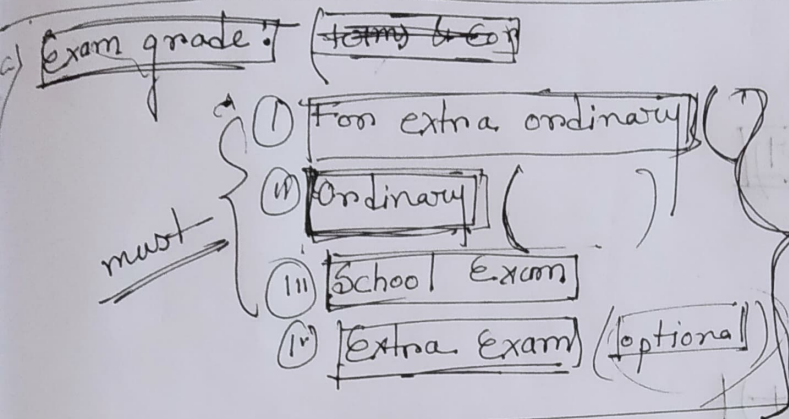 a) Exam grade:
(I) For extra ordinary ( )
(II) Ordinary ( )
must
(III) School Exam
(IV) Extra Exam (optional)